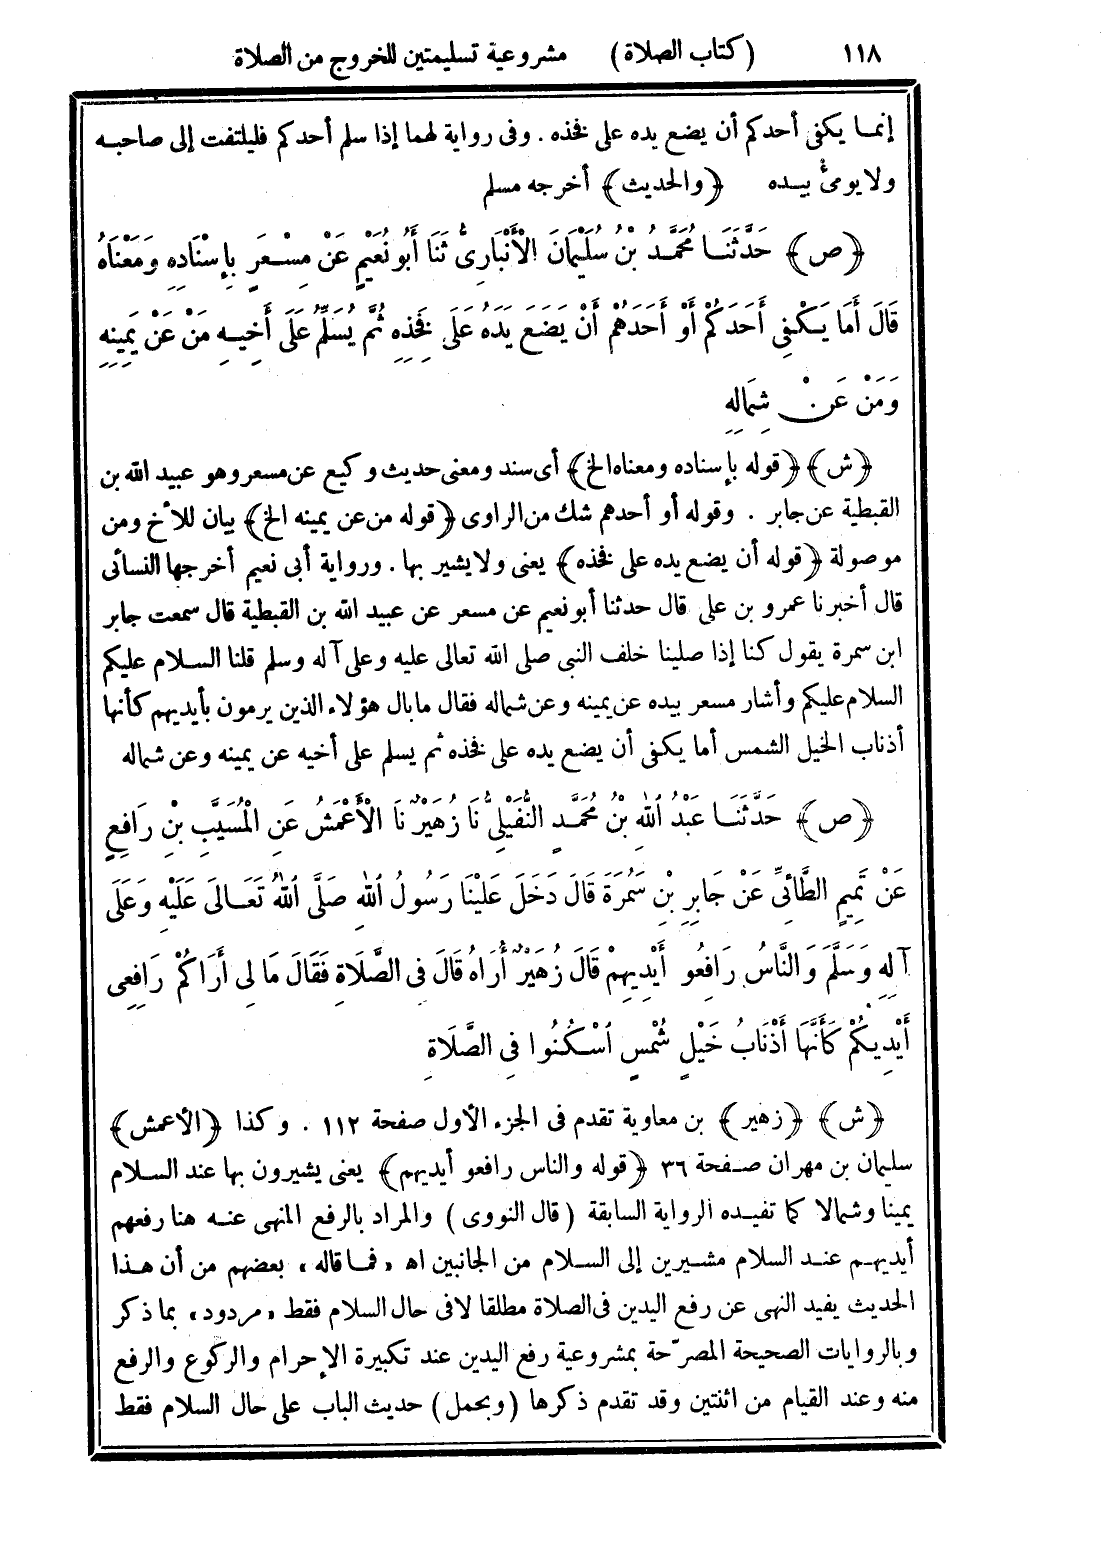 ١١٨ (كتاب الصلاة) مشروعية تسليمتين للخروج من الصلاة
إنما يكفى أحدكم أن يضع يده على فخذه. وفى رواية لهما إذا سلم أحدكم فليلتفت إلى صاحبه
ولا يومئ بيده ﴿والحديث﴾ أخرجه مسلم
﴿ص﴾ حَدَّثَنَا مُحَمَّدُ بْنُ سُلَيْمَانَ الْأَنْبَارِىُّ ثَنَا أَبُو نُعَيْمٍ عَنْ مِسْعَرٍ بِإِسْنَادِهِ وَمَعْنَاهُ
قَالَ أَمَا يَكْفِى أَحَدَكُمْ أَوْ أَحَدَهُمْ أَنْ يَضَعَ يَدَهُ عَلَى فَخِذِهِ ثُمَّ يُسَلِّمُ عَلَى أَخِيهِ مَنْ عَنْ يَمِينِهِ
وَمَنْ عَنْ شِمَالِهِ
﴿ش﴾ ﴿قوله بإسناده ومعناه الخ﴾ أى سند ومعنى حديث وكيع عن مسعر وهو عبيد الله بن
القبطية عن جابر . وقوله أو أحدهم شك من الراوى ﴿قوله من عن يمينه الخ﴾ بيان للأخ ومن
موصولة ﴿قوله أن يضع يده على فخذه﴾ يعنى ولا يشير بها . ورواية أبى نعيم أخرجها النسائى
قال أخبرنا عمرو بن على قال حدثنا أبو نعيم عن مسعر عن عبيد الله بن القبطية قال سمعت جابر
ابن سمرة يقول كنا إذا صلينا خلف النبى صلى الله تعالى عليه وعلى آله وسلم قلنا السلام عليكم
السلام عليكم وأشار مسعر بيده عن يمينه وعن شماله فقال ما بال هؤلاء الذين يرمون بأيديهم كأنها
أذناب الخيل الشمس أما يكفى أن يضع يده على فخذه ثم يسلم على أخيه عن يمينه وعن شماله
﴿ص﴾ حَدَّثَنَا عَبْدُ اللهِ بْنُ مُحَمَّدٍ النُّفَيْلِىُّ نَا زُهَيْرٌ نَا الْأَعْمَشُ عَنِ الْمُسَيَّبِ بْنِ رَافِعٍ
عَنْ تَمِيمٍ الطَّائِىِّ عَنْ جَابِرِ بْنِ سَمُرَةَ قَالَ دَخَلَ عَلَيْنَا رَسُولُ اللهِ صَلَّى اللهُ تَعَالَى عَلَيْهِ وَعَلَى
آلِهِ وَسَلَّمَ وَالنَّاسُ رَافِعُو أَيْدِيهِمْ قَالَ زُهَيْرٌ أُرَاهُ قَالَ فِى الصَّلَاةِ فَقَالَ مَا لِى أَرَاكُمْ رَافِعِى
أَيْدِيكُمْ كَأَنَّهَا أَذْنَابُ خَيْلٍ شُمْسٍ اُسْكُنُوا فِى الصَّلَاةِ
﴿ش﴾ ﴿زهير﴾ بن معاوية تقدم فى الجزء الأول صفحة ١١٢ . وكذا ﴿الأعمش﴾
سليمان بن مهران صفحة ٣٦ ﴿قوله والناس رافعو أيديهم﴾ يعنى يشيرون بها عند السلام
يمينا وشمالا كما تفيده الرواية السابقة (قال النووى) والمراد بالرفع المنهى عنه هنا رفعهم
أيديهم عند السلام مشيرين إلى السلام من الجانبين اه «فما قاله» بعضهم من أن هذا
الحديث يفيد النهى عن رفع اليدين فى الصلاة مطلقا لا فى حال السلام فقط «مردود» بما ذكر
وبالروايات الصحيحة المصرّحة بمشروعية رفع اليدين عند تكبيرة الإحرام والركوع والرفع
منه وعند القيام من اثنتين وقد تقدم ذكرها (ويحمل) حديث الباب على حال السلام فقط